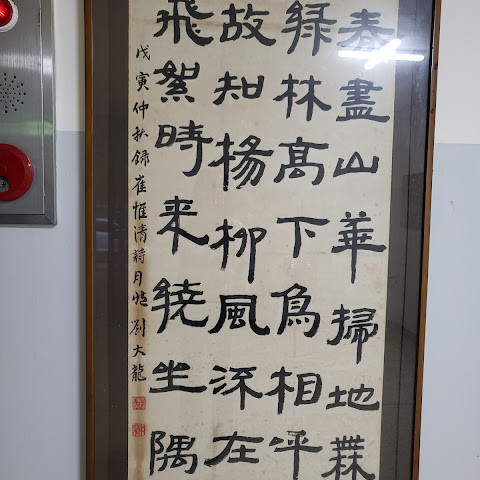 春盡山華掃地無
緑林高下鳥相呼
故知楊柳風流在
飛絮時来繞坐隅
戊寅仲秋録崔惟清詩月 劉大龍